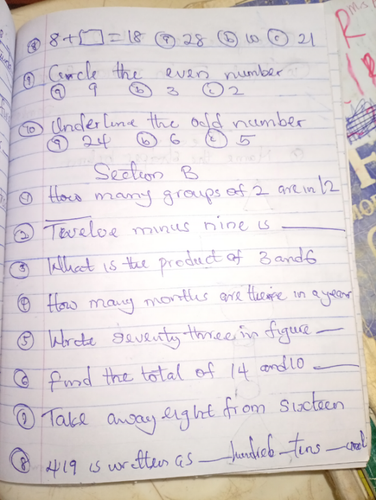 ⑧ 8 + □ = 18 ⓐ 28 ⓑ 10 ⓒ 21
⑨ Circle the even number
ⓐ 9 ⓑ 3 ⓒ 2
⑩ Underline the odd number
ⓐ 24 ⓑ 6 ⓒ 5
Section B
① How many groups of 2 are in 12
② Twveloe minus nine is ____
③ What is the product of 3 and 6
④ How many months are there in a year
⑤ Write seventy-three in figure __
⑥ find the total of 14 and 10 __
⑦ Take away eight from sixteen
⑧ 419 is written as __ hundreds __ tens __